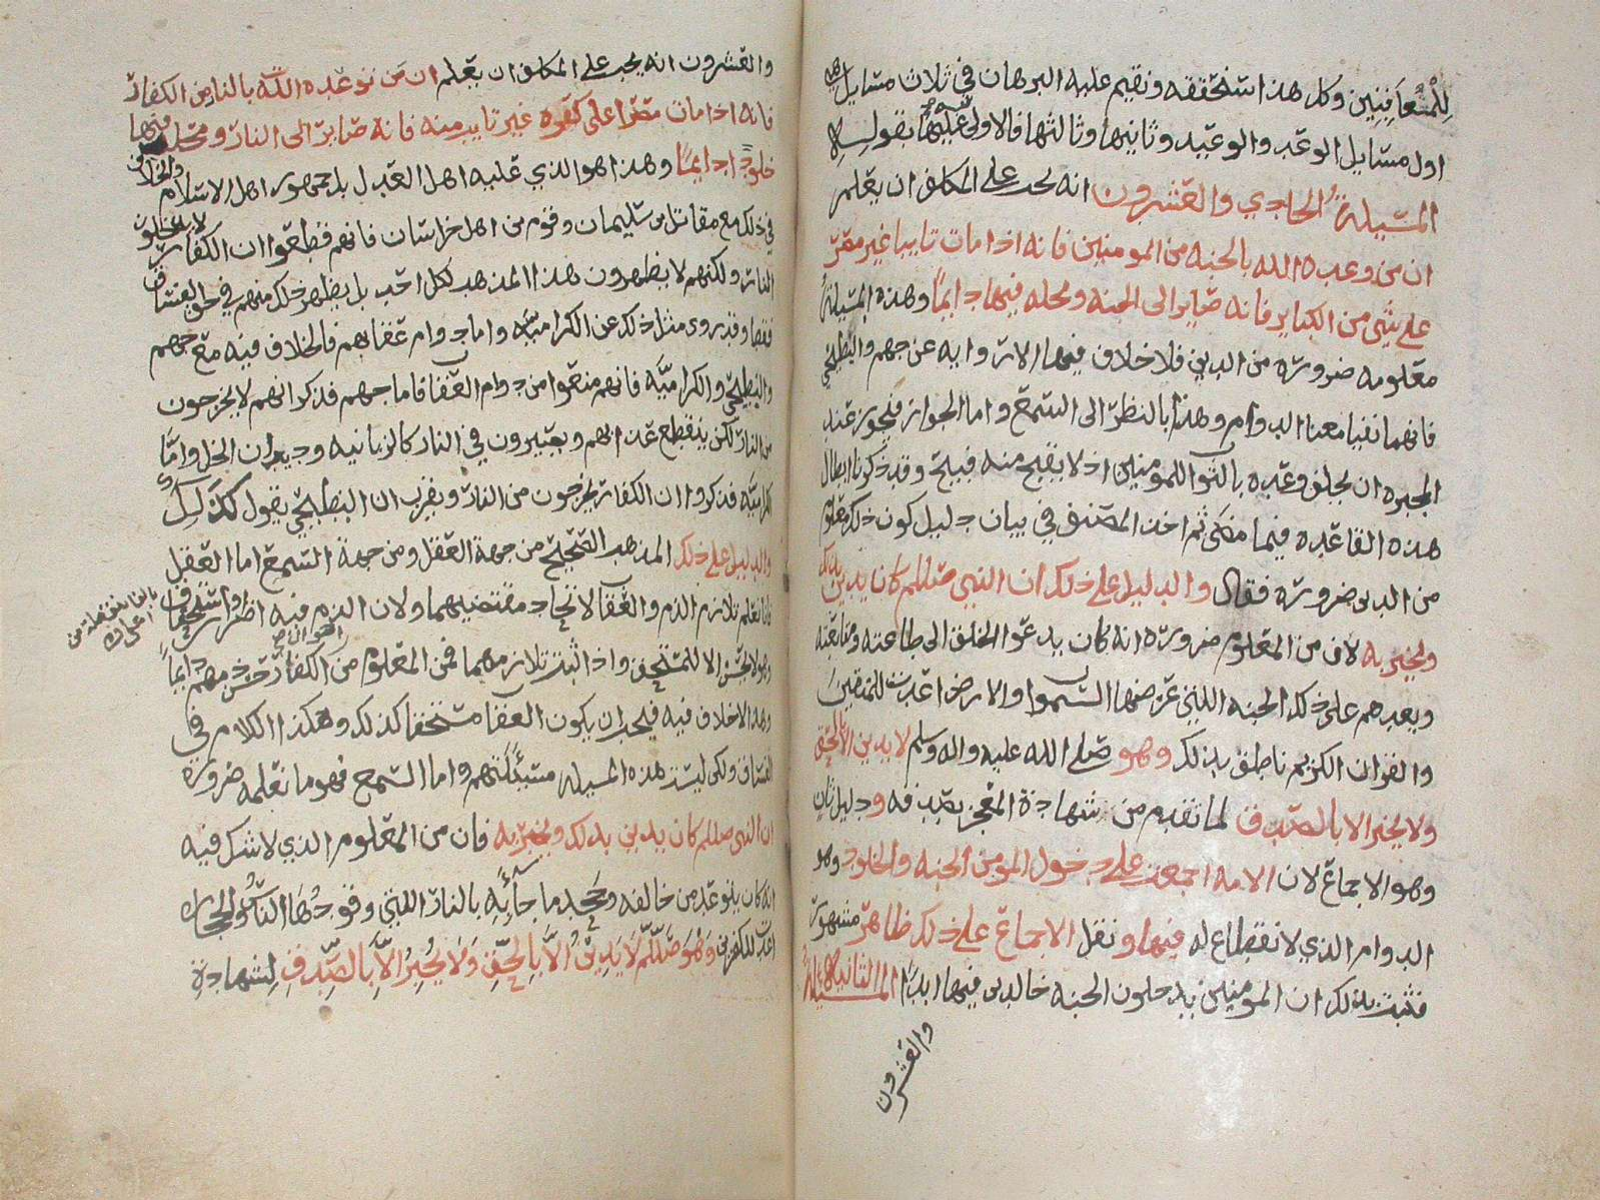 للمعاقبين وكل هذا سنحققه ونقيم عليه البرهان في ثلاث مسايل هي
اول مسايل الوعد والوعيد وثانيها وثالثها فالاولى عليها بقوله
المسيلة الحادي والعشرون انه يجب على المكلف ان يعلم
ان من وعده الله بالجنه من المومنين فانه اذا مات تايبا غير مصر
على شي من الكباير فانه صاير الى الجنه ومخله فيها دايمًا وهذه المسيلة
معلومه ضرورة من الدين فلا خلاف فيها الا رواية عن جهم والبطيخي
فانهما نفيا معنا الدوام وهذا بالنظر الى السمع واما الجواز فيجوز عند
المجبره ان يخلف وعده بالثواب للمومنين اذ لا يقبح منه قبيح وقد ذكرنا ابطال
هذه القاعده فيما مضى ثم اخذ المصنف في بيان دليل كون ذلك معلوم
من الدين ضرورة فقال والدليل على ذلك ان النبي صلللم كان يدين بذلك
ويخبر به لان من المعلوم ضرورة انه كان يدعوا الخلق الى طاعته ومتابعته
ويعدهم على ذلك الجنه اللتي عرضها السموات والارض اعدت للمتقين
والقران الكريم ناطق بذلك وهو صلى الله عليه واله وسلم لا يدين الا بالحق
ولا يخبر الا بالصدق لما تقدم من شهادة المعجز بصدقه ودليل ثان
وهو الاجماع لان الامه اجمعت على دخول المومن الجنه والخلود وهو
الدوام الذي لا نقطاع له فيها ونقل الاجماع على ذلك ظاهر مشهور
فثبت بذلك ان المومنين يدخلون الجنه خالدين فيها ابدًا المسيلة الثانية
والعشرون
والعشرون انه يجب على المكلف ان يعلم ان من توعده الله بالنار من الكفار
فانه اذا مات مصرا على كفره غير تايب منه فانه صاير الى النار ومخلد فيها
خلودًا دايمًا وهذا هو الذي عليه اهل العدل بل جمهور اهل الاسلام والخلاف
في ذلك مع مقاتل بن سليمان وقوم من اهل خراسان فانهم قطعوا ان الكفار لا يدخلون
النار ولكنهم لا يظهرون هذا المذهب لكل احد بل يظهر ذلك منهم في حق الفساق
فقط وقد روي مثل ذلك عن الكراميه واما دوام عقابهم فالخلاف فيه مع جهم
والبطيخي والكراميه فانهم منعوا من دوام العقاب فاما جهم فذكر انهم لا يخرجون
من النار لكن ينقطع عذابهم ويصيرون في النار كالزبانيه وديدان الخل واما
الكراميه فذكروا ان الكفار يخرجون من النار ويقرب ان البطيخي يقول كذلك
والدليل على ذلك المذهب الصحيح من جهة العقل ومن جهة السمع اما العقل
فانا نعلم تلازم الذم والعقاب لاتحاد مقتضيهما ولان الذم فيه اضرار واستخفاف
وهو لا يحسن الا للمستحق واذا ثبت تلازمهما فمن المعلوم من الكفار حسن ذمهم دايمًا
وهذا لا خلاف فيه فيجب ان يكون العقاب مستحقا كذلك وهكذا الكلام في
الفساق ولكن ليست هذه المسيله مسئلتهم واما السمع فهو ما نعلمه ضرورة
ان النبي صلللم كان يدين بذلك ويخبر به فان من المعلوم الذي لا شك فيه
انه كان يتوعد من خالفه وجحد ما جاء به بالنار اللتي وقودها الناس والحجارة
اعدت للكفرين وهو صلللم لا يدين الا بالحق ولا يخبر الا بالصدق لشهادة